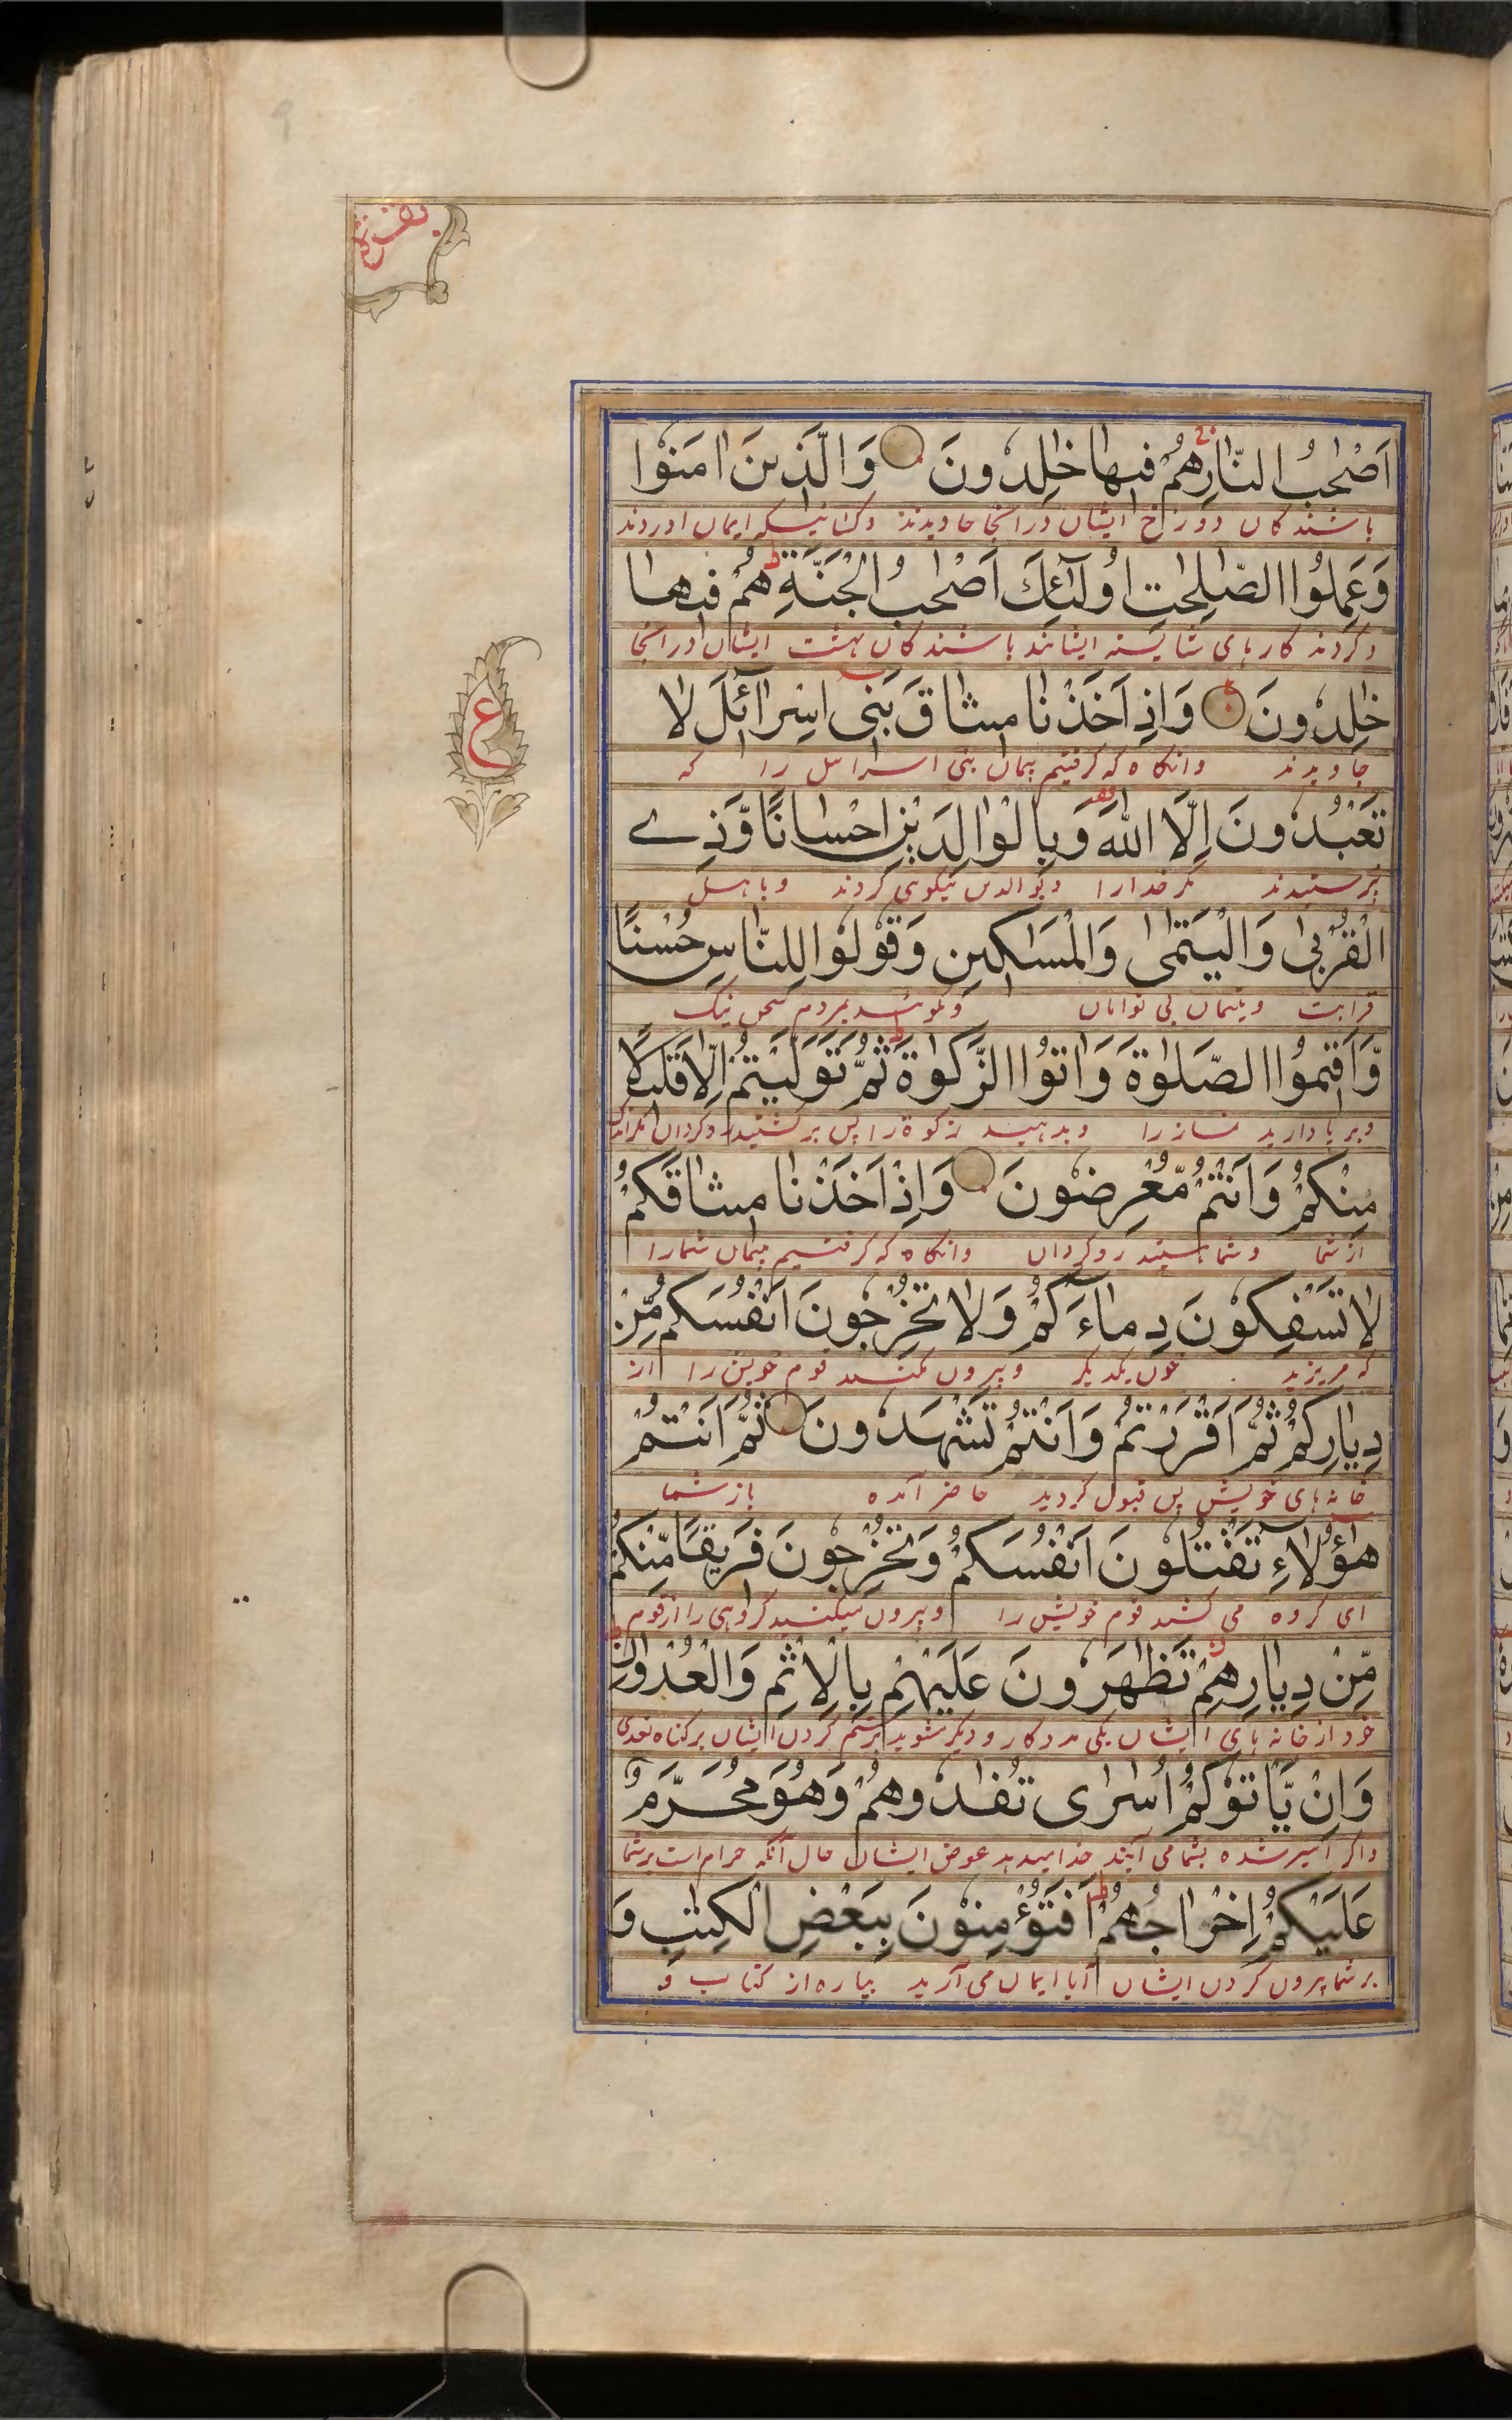 بقرة
اَصْحٰبُ النَّارِ هُمْ فِيهَا خٰلِدُونَ وَالَّذِينَ اٰمَنُوا
باشندکان دوزخ ایشان در انجا جاویدند وکسانیکه ایمان اوردند
وَعَمِلُوا الصّٰلِحٰتِ اُولٰٓئِكَ اَصْحٰبُ الْجَنَّةِ هُمْ فِيهَا
وکردند کارهای شایسته ایشانند باشندکان بهشت ایشان در انجا
خٰلِدُونَ وَاِذْ اَخَذْنَا مِيثَاقَ بَنِى اِسْرَآئِلَ لَا
ع
جاویدند وانگاه که گرفتیم پیمان بنی اسرائیل را که
تَعْبُدُونَ اِلَّا اللّٰهَ وَبِالْوَالِدَيْنِ اِحْسَانًا وَّذِے
نپرستیدند مگر خدارا وبوالدین نیکوی کردند وباهل
الْقُرْبٰى وَالْيَتٰمٰى وَالْمَسٰكِينِ وَقُولُوا لِلنَّاسِ حُسْنًا
قرابت ویتیمان بی نوایان وبگوئید بمردم سخن نیک
وَّاَقِيمُوا الصَّلٰوةَ وَاٰتُوا الزَّكٰوةَ ثُمَّ تَوَلَّيْتُمْ اِلَّا قَلِيلًا
وبرپا دارید نماز را وبدهید زکوة را پس برگشتید روگردان مگر اندک
مِنْكُمْ وَاَنْتُمْ مُّعْرِضُونَ وَاِذْ اَخَذْنَا مِيثَاقَكُمْ
از شما وشما هستید روگردان وانگاه که گرفتیم پیمان شمارا
لَا تَسْفِكُونَ دِمَآءَكُمْ وَلَا تُخْرِجُونَ اَنْفُسَكُمْ مِّنْ
که مریزید خون یکدیگر وبیرون مکنید قوم خویش را از
دِيَارِكُمْ ثُمَّ اَقْرَرْتُمْ وَاَنْتُمْ تَشْهَدُونَ ثُمَّ اَنْتُمْ
خانه های خویش پس قبول کردید حاضر آمده باز شما
هٰٓؤُلَاءِ تَقْتُلُونَ اَنْفُسَكُمْ وَتُخْرِجُونَ فَرِيقًا مِّنْكُمْ
ای گروه می کشید قوم خویش را وبیرون میکنید گروهی را از قوم
مِّنْ دِيَارِهِمْ تَظٰهَرُونَ عَلَيْهِمْ بِالْاِثْمِ وَالْعُدْوَانِ
خود از خانه های ایشان یکی مددکار ودیگر شوید بر ستم کردن ایشان بر گناه تعدی
وَاِنْ يَّاْتُوكُمْ اُسٰرٰى تُفٰدُوهُمْ وَهُوَ مُحَرَّمٌ
واگر اسیر شده بشما می آیند فدا میدهد عوض ایشان حال آنکه حرام است بر شما
عَلَيْكُمْ اِخْرَاجُهُمْ اَفَتُؤْمِنُونَ بِبَعْضِ الْكِتٰبِ وَ
بر شما بیرون کردن ایشان آیا ایمان می آرید بپاره از کتاب و